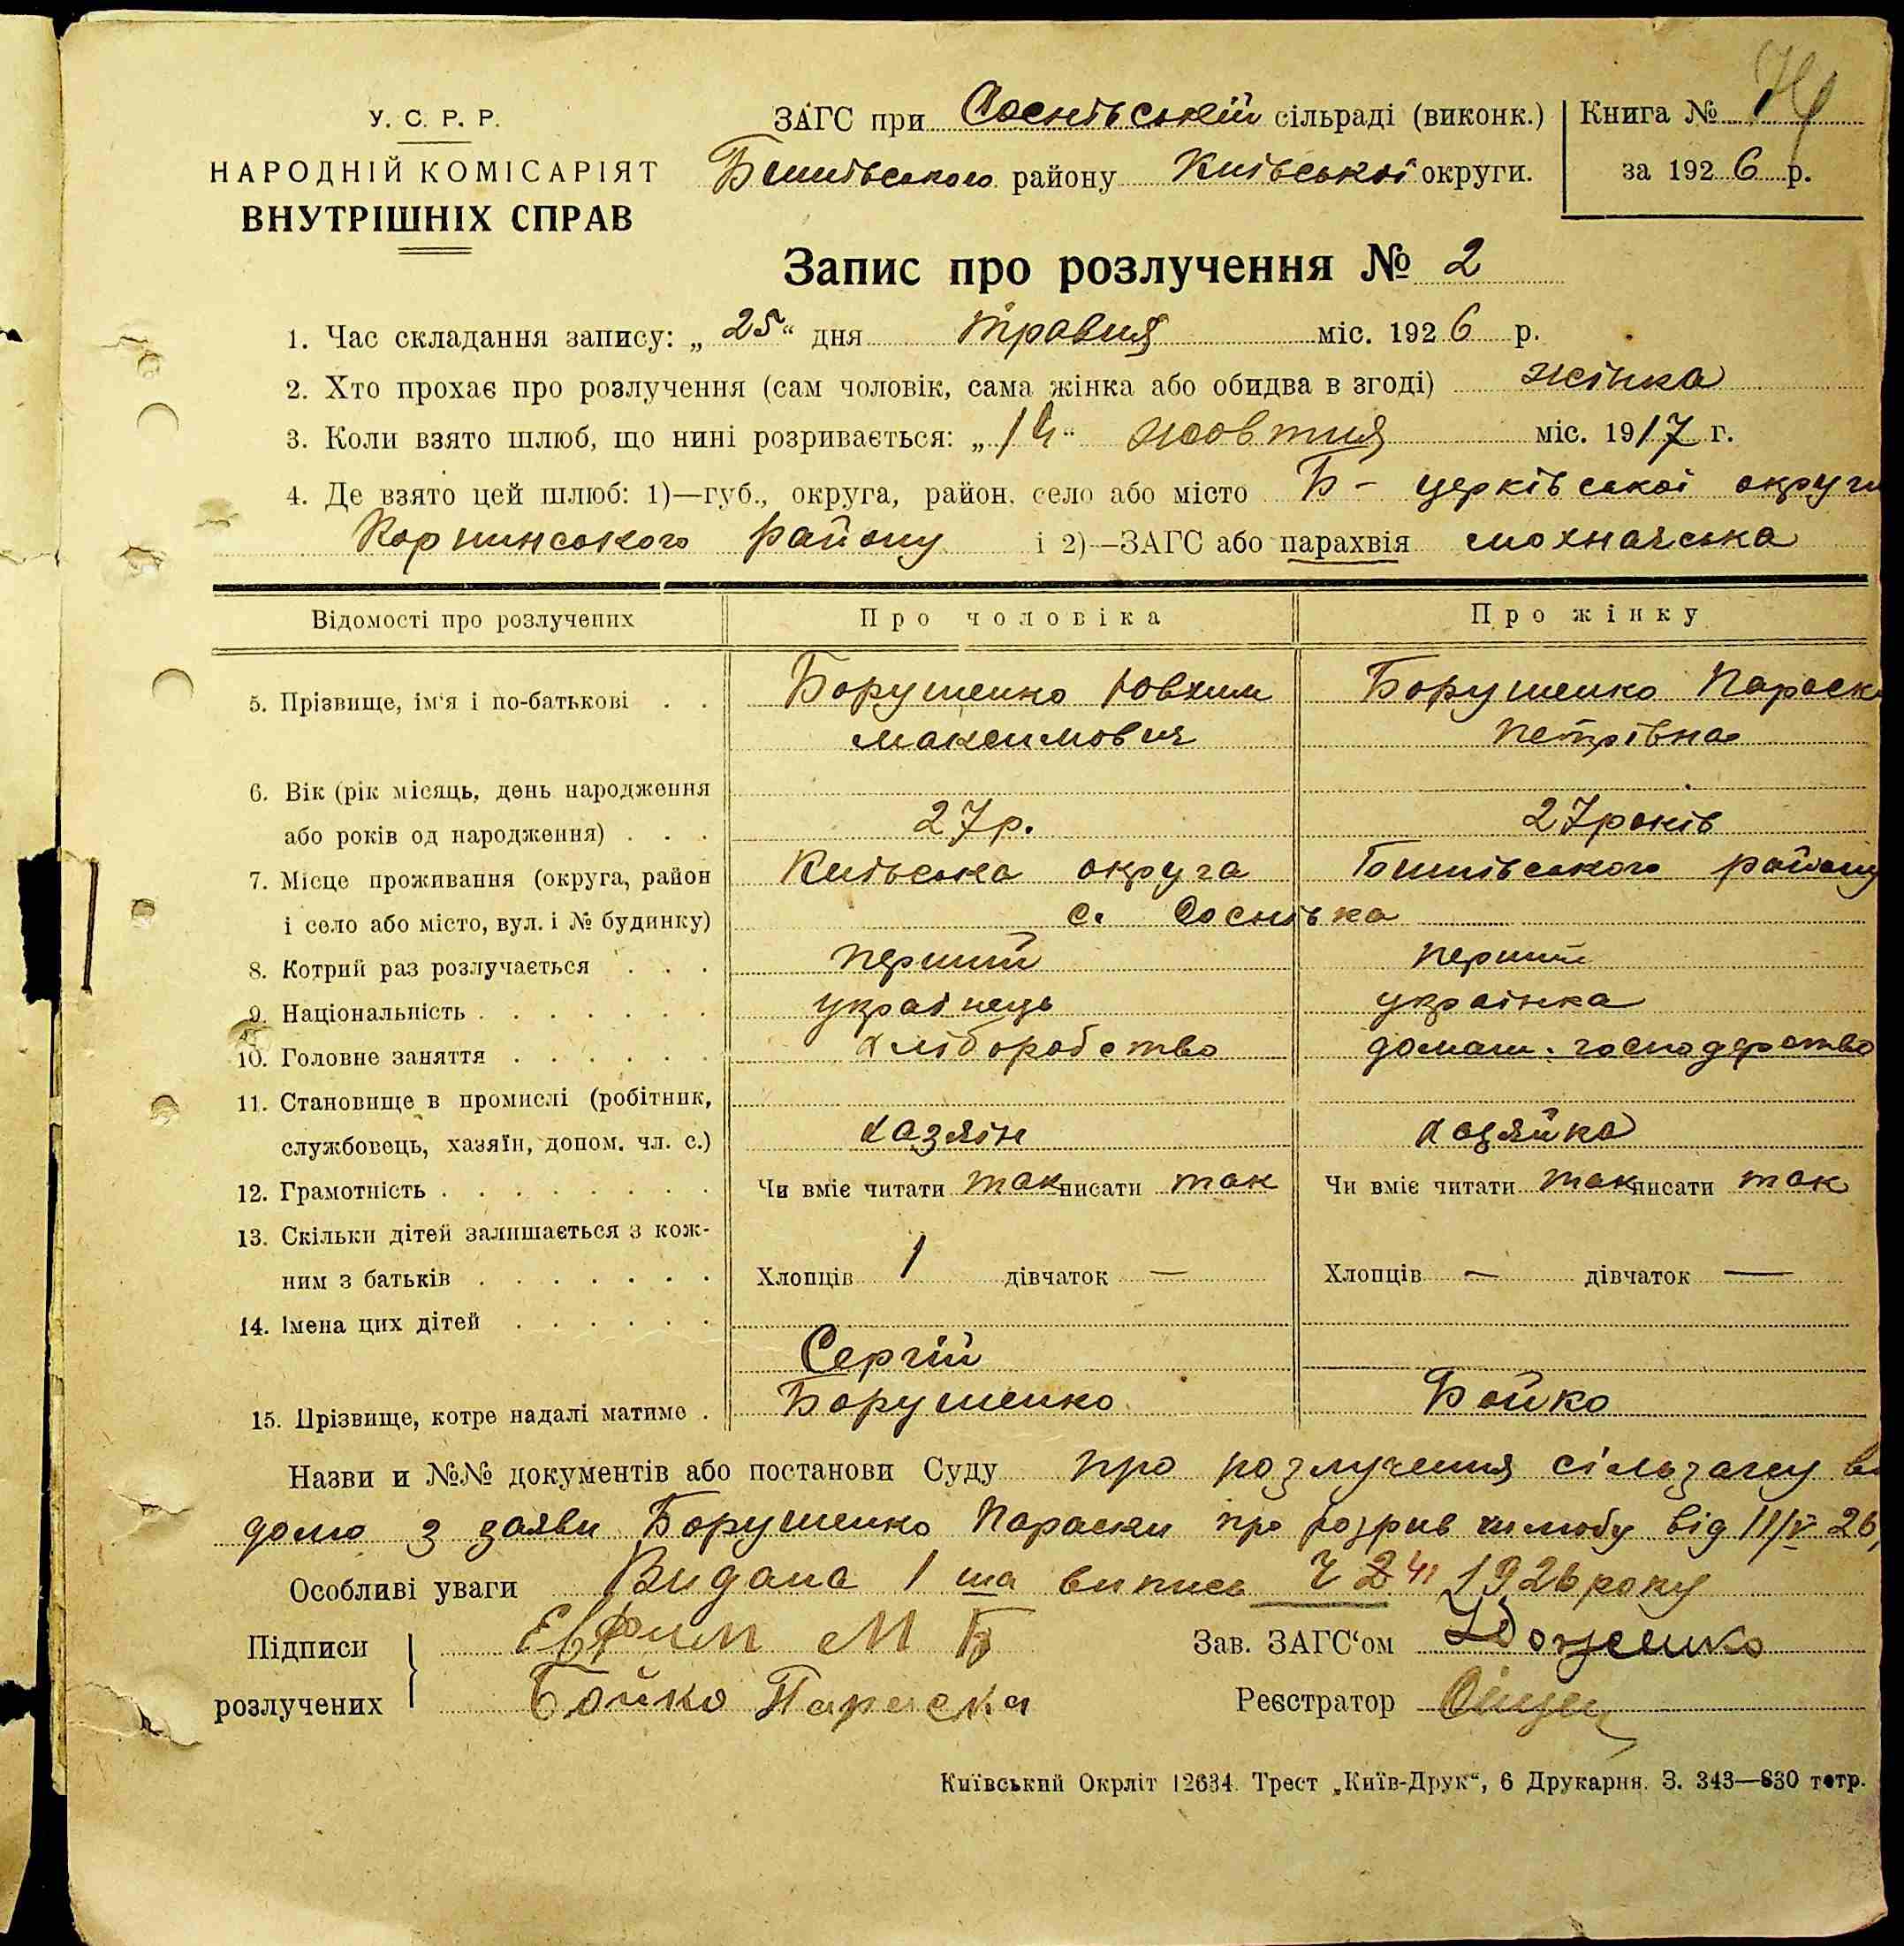 У. С. Р. Р.
НАРОДНІЙ КОМІСАРІЯТ
ВНУТРІШНІХ СПРАВ
ЗАГС при Соснівській сільраді (виконк.)
Бишівського району Київської округи.
Книга №
за 1926 р.
Запис про розлучення № 2
1. Час складання запису: „25“ дня травня міс. 1926 р.
2. Хто прохає про розлучення (сам чоловік, сама жінка або обидва в згоді) жінка
3. Коли взято шлюб, що нині розривається: „14“ жовтня міс. 1917 г.
4. Де взято цей шлюб: 1)—губ., округа, район, село або місто Б-церківської округи
Корнинського району і 2)—ЗАГС або парахвія мохначська
Відомості про розлучених Про чоловіка Про жінку
5. Прізвище, ім‘я і по-батькові . . Борушенко Ювхим Борушенко Параск
максимович петрівна
6. Вік (рік місяць, день народження
або років од народження) . . . 27р. 27років
7. Місце проживання (округа, район Київська округа Бишівського району
і село або місто, вул. і № будинку) с. Соснівка
8. Котрий раз розлучається . . . перший перший
9. Національність . . . . . . . українець українка
10. Головне заняття . . . . . . хліборобство домаш. господарство
11. Становище в промислі (робітник,
службовець, хазяїн, допом. чл. с.) хазяїн хазяйка
12. Грамотність . . . . . . . . Чи вміє читати так писати так Чи вміє читати так писати так
13. Скільки дітей залишається з кож-
ним з батьків . . . . . . . Хлопців 1 дівчаток — Хлопців — дівчаток —
14. Імена цих дітей . . . . . .
Сергій
15. Прізвище, котре надалі матиме . Борушенко Бойко
Назви и №№ документів або постанови Суду про розлучення сільзагсу ві
домо з заяви Борушенко Параски про розрив шлюбу від 11/V 26
Особливі уваги Видана 1 ша випись 1926 року
Підписи Евфим М Б Зав. ЗАГС‘ом
розлучених Бойко Параска Реєстратор
Київський Окрліт 12634. Трест „Київ-Друк“, 6 Друкарня. З. 343—830 тетр.